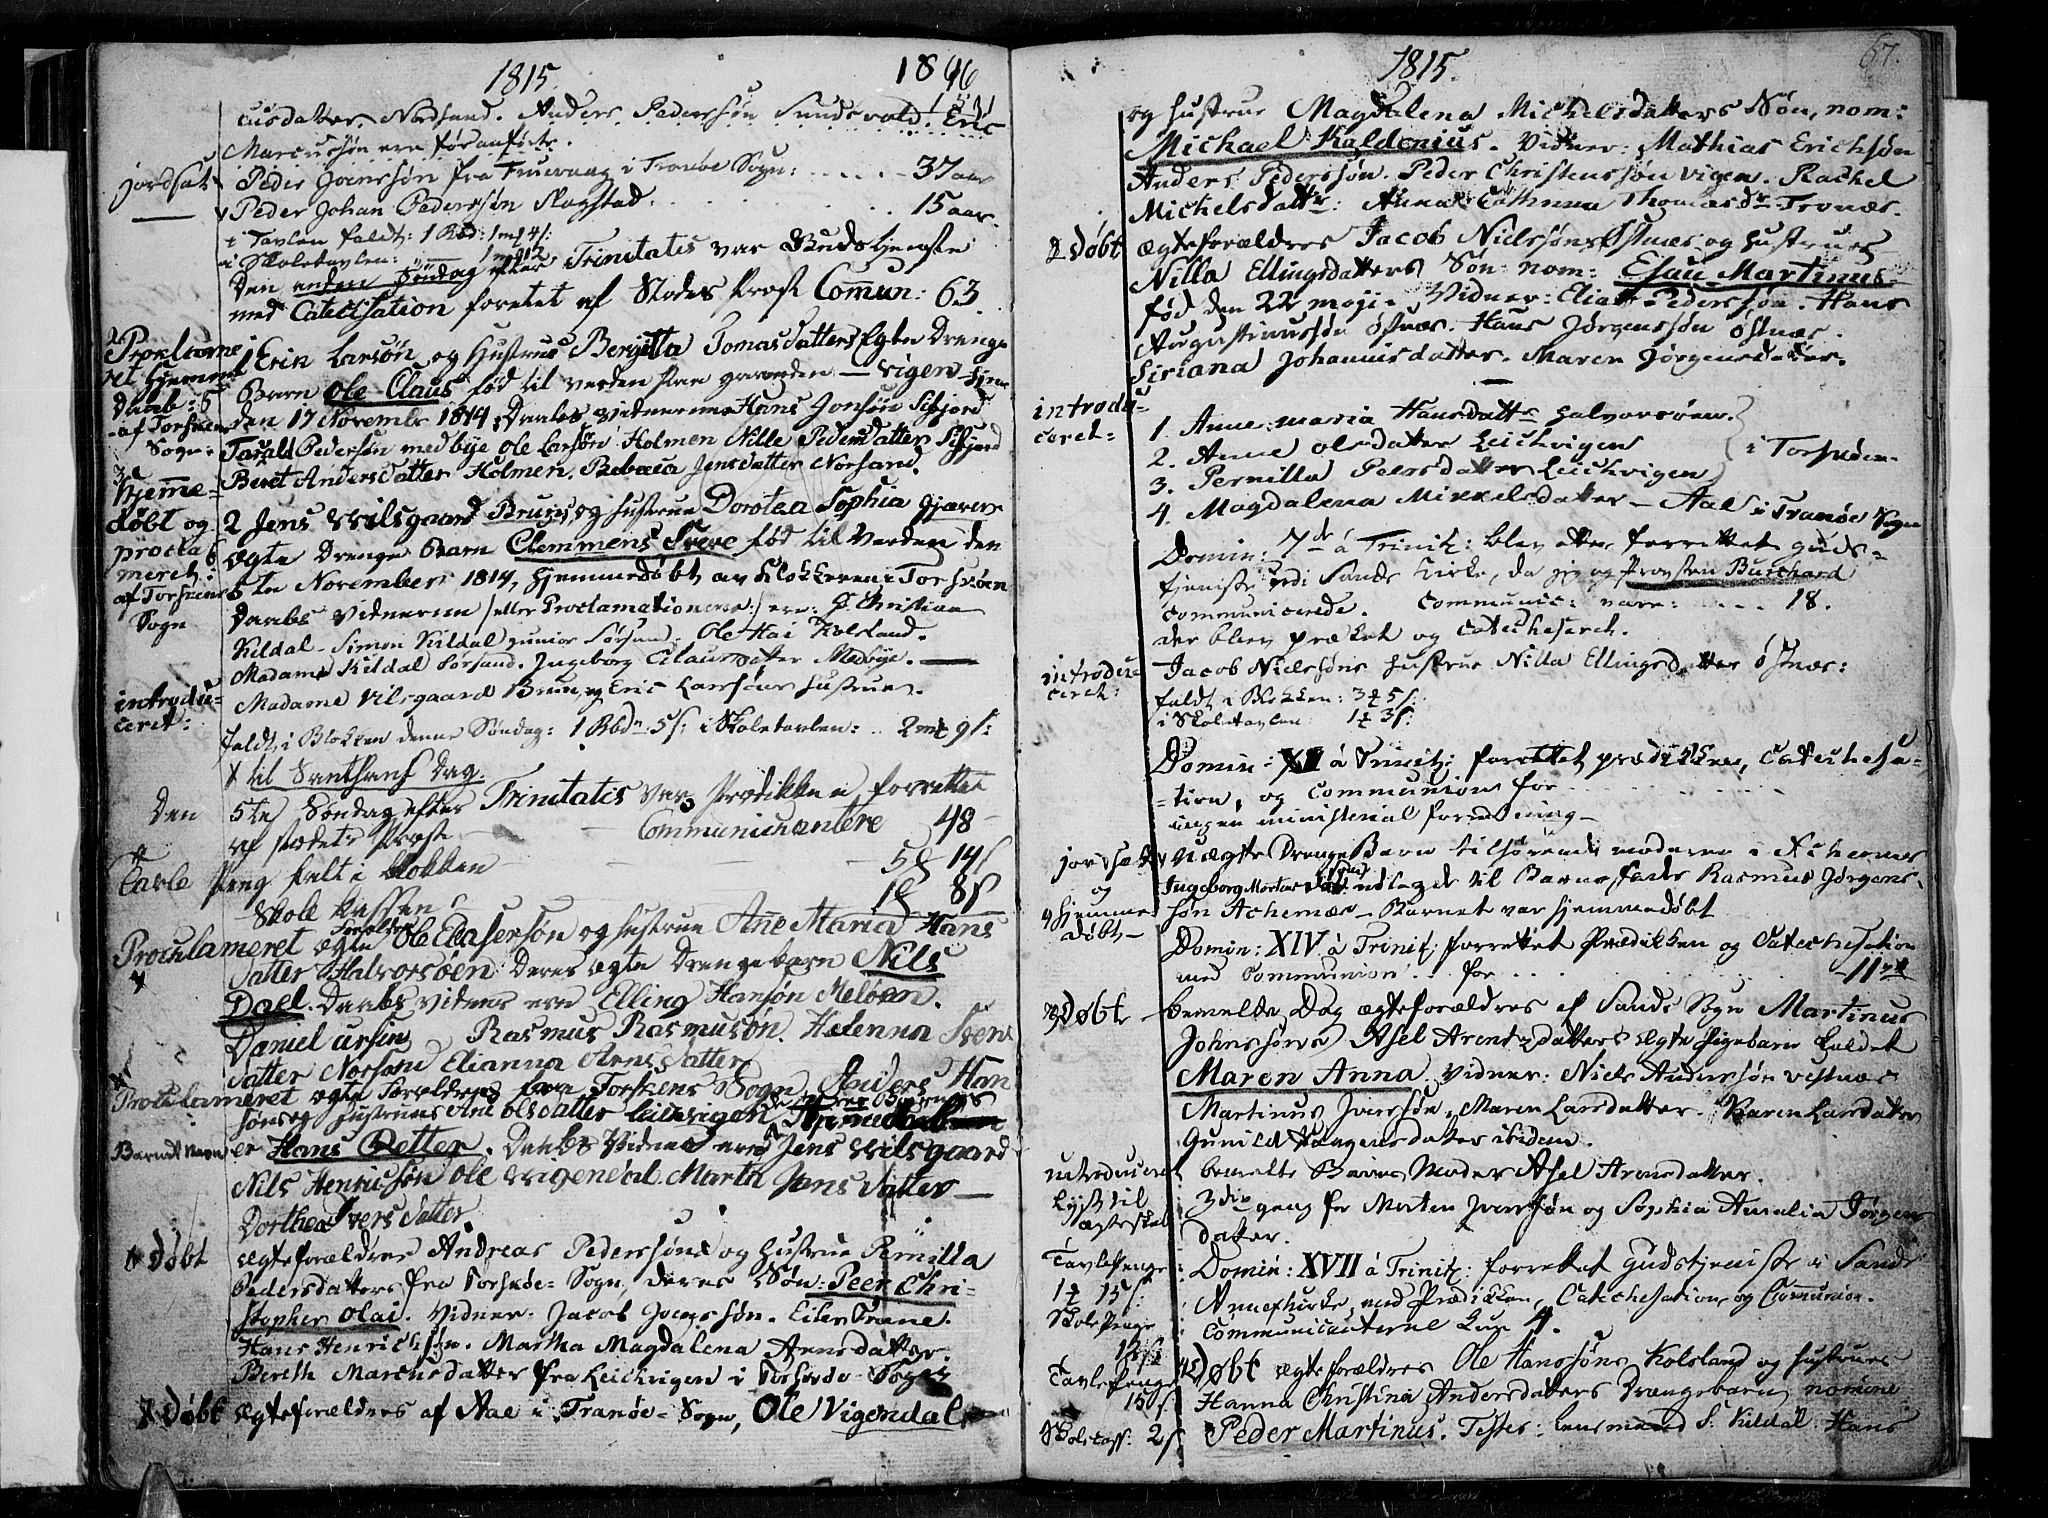 1815.
1816
cusdatter Nordsund. Anders Pederssøn Sundsvold. Eric
Marcussøn ere før anførte.
jordsat
Peder Joenssøn fra Fruevaag i Tranøe Sogn: 37 aar
Peder Johan Pederssøn Skogstad. 15 aar.
i Tavlen faldt: 1 Rbd: 1 m 4 s:
i Skoletavlen: 1 m 12
Den anden Søndag efter Trinitatis var Gudstjeneste
med Catechisation foretet af Stedes Præst Comun: 63
1 Erik Larsøn og Hustrue Bergitta Tomasdatters Egte Drenge
Barn Ole Claus fød til verden
den 17 November 1814, Daabs vidnerne Hans Jonsøn Sifjord
Tarald Pedersøn medbye Ole Larsøn Holmen Nille Pedersdatter Sifjord
Beret Andersdatter Holmen. Rebecca Jensdatter Norsand.
Hjemme-
døbt og
procla
meret
af Torskens
Sogn
2 Jens Wilsgaard Bruun, og Hustrue Dorotea Sophia Gjæver
ægte Drenge Barn Clemmens Svere fød til Verden den
5te November 1814, Hjemmedøbt av Klokkeren i Torskøen
Daabs Vidnerne eller Proclamationerne ere: Christian
Kildal - Simon Kildal junior Sørsand. Ole Hai Kolsland.
Madame Kildal Sørsand. Ingeborg Clausdatter Medbye.
introdu-
ceret:
Madame Vilsgaard Bruun, og Eric Larsøns Hustrue.
faldt i Blokken denne Søndag: 1 Rbd 5 s: i Skoletavlen: 2 mk 9 s:
til Sanct Hans Dag.
Den 5te Søndag efter Trinitatis var Prædikken forrettet
af stædets Præst Communichantere 48
Tavle Peng falt i blokken 5 14 s
Skole Kassen 1 8 s
Proclameret ægte Forældre Ole Eliasersøn og hustrue Ane Maria Hans
datter Halvorsøen Deres ægte Drengebarn Nils
Dael. Daabs vidner ere Elling Hansøn Meløen.
Daniel Rasmus Rasmusøn. Helenna Svens
datter Norsand Elianna Arnsdatter
Proclameret ægte Forældre fra Torskens Sogn Anders Han
søn og hustrue Ane Olsdatter Leikvigen
Barnets Navn er Hans Petter. Daabs Vidner ere Jens Wilsgaard
Nils Henricsøn Ole Wigendal. Marta Jensdatter
Dorthea Iversdatter.
6 Døbt ægteforældre Andreas Pederssøn og Hustrue Pernilla
Pedersdatters fra Torskøe Sogn, deres Søn: Peer Chri-
stopher Olai. Vidner: Jacob Joenssøn. Eiler Trane.
Hans Henrichsøn. Martha Magdalena Arnesdatter.
Bereth Marcusdatter fra Leichvigen i Torskøe Sogn
7 Døbt ægteforældres af Aae i Tranøe Sogn, Ole Vigendal
67.
1815.
og hustrue Magdalena Michelsdatters Søn, nom:
Michael Koldenius. Vidner: Mathias Erichsøn
Anders Pederssøn. Peder Christenssøn Vigen. Rachel
Michelsdattr: Anna Cathrina Thomasdr Tronæs.
2 Døbt
ægteforældres Jacob Nielssøns Østnæs og Hustrues
Nilla Ellingsdatters Søn nom: Esau Martinus
fød den 22 maji. Vidner: Elias Pederssøn. Hans
Augustinussøn Østnæs. Hans Jørgenssøn Østnæs.
Siriana Johannisdatter. Maren Jørgensdatter.
introdu-
ceret
1. Anne Maria Hansdattr Halvorsøen.
2. Anne Olsdatter Leichvigen
3. Pernilla Peersdatter Leichvigen
i Torskøen
4. Magdalena Mikkelsdatter - Aae i Tranøe Sogn
Domin: 7de à Trinit: blev atter forrettet guds-
tjeniste udi Sands Kirke, da jeg og Provsten Buschard
communicerede. Communic: vare: 18.
der blev præket og Catechiseret.
introdu-
ceret:
Jacob Nielssøns hustrue Nilla Ellingsdatter Østnæs:
faldt i Blokken: 3 5 s:
i Skoletavlen: 1 3 s:
Domin: XI à Trinit: forrettet prædikken, catechesa-
tion, og communion for
ingen ministerial forretning
jordsat
og
Hjemme
døbt
uægte Drenge Barn tilhørende moderen i Achernes
Ingeborg Mortensdatter udlagde til Barnefader Rasmus Jørgens
søn Achernæs - Barnet var hjemmedøbt
Domin: XIV à Trinit: forrettet Prædikken og Catechesation
med Communion for 11
Døbt
bemelte Dag ægteforældres af Sands Sogn Martinus
Johnssøn Asel Arentsdatters ægte Pigebarn kaldet
Maren Anna. Vidner: Niels Anderssøn Vestnæs
Martinus Iverssøn, Maren Larsdatter. Karen Larsdatter
Gunild Haagensdatter ibidem.
introduceret bemelte Barns Moder Asel Arensdatter.
Lyst til
ægteskab
3die gang for Morten Iverssøn og Sophia Amalia Jørgens
datter.
Tavlepenge
1 15 s:
Skole Penge
12 s
Domin: XVII à Trinit: forrettet Gudstjeniste i Sands
Annexkirke, med Prædikken, Catechesation, og Communion.
Communicanterne kun 4.
Tavlepenge
15 s
Skolcass: 2 s
Døbt ægteforældres Ole Hanssøns Kolsland og hustrues
Hanna Christina Andersdatters Drængebarn, nomine
Peder Martinus. Testes: Lensmand S: Kildal. Hans